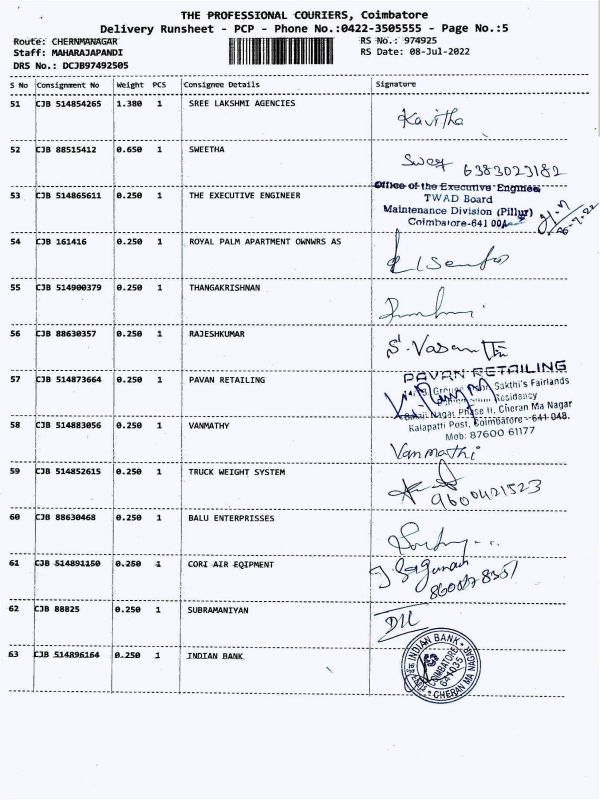 THE PROFESSIONAL COURIERS, Coimbatore
Delivery Runsheet - PCP - Phone No.:0422-3505555 - Page No.:5
Route: CHERNMANAGAR
Staff: MAHARAJAPANDI
DRS No.: DCJB97492505
RS No.: 974925
RS Date: 08-Jul-2022
S No Consignment No Weight PCS Consignee Details Signature
51 CJB 514854265 1.380 1 SREE LAKSHMI AGENCIES
Kavitha
52 CJB 88515412 0.650 1 SWEETHA
6383023182
53 CJB 514865611 0.250 1 THE EXECUTIVE ENGINEER
Office of the Executive Engineer
TWAD Board
Maintenance Division (Pillur)
Coimbatore-641 004
54 CJB 161416 0.250 1 ROYAL PALM APARTMENT OWNWRS AS
55 CJB 514900379 0.250 1 THANGAKRISHNAN
56 CJB 88630357 0.250 1 RAJESHKUMAR
57 CJB 514873664 0.250 1 PAVAN RETAILING
PAVAN RETAILING
Sakthi's Fairlands
Residency
Nagar Phase II, Cheran Ma Nagar
Kalapatti Post, Coimbatore - 641 048.
Mob: 87600 61177
58 CJB 514883056 0.250 1 VANMATHY
Vanmathi
59 CJB 514852615 0.250 1 TRUCK WEIGHT SYSTEM
9600421523
60 CJB 88630468 0.250 1 BALU ENTERPRISSES
61 CJB 514891150 0.250 1 CORI AIR EQIPMENT
62 CJB 88825 0.250 1 SUBRAMANIYAN
63 CJB 514896164 0.250 1 INDIAN BANK
INDIAN BANK
COIMBATORE
641035
CHERAN MA NAGAR